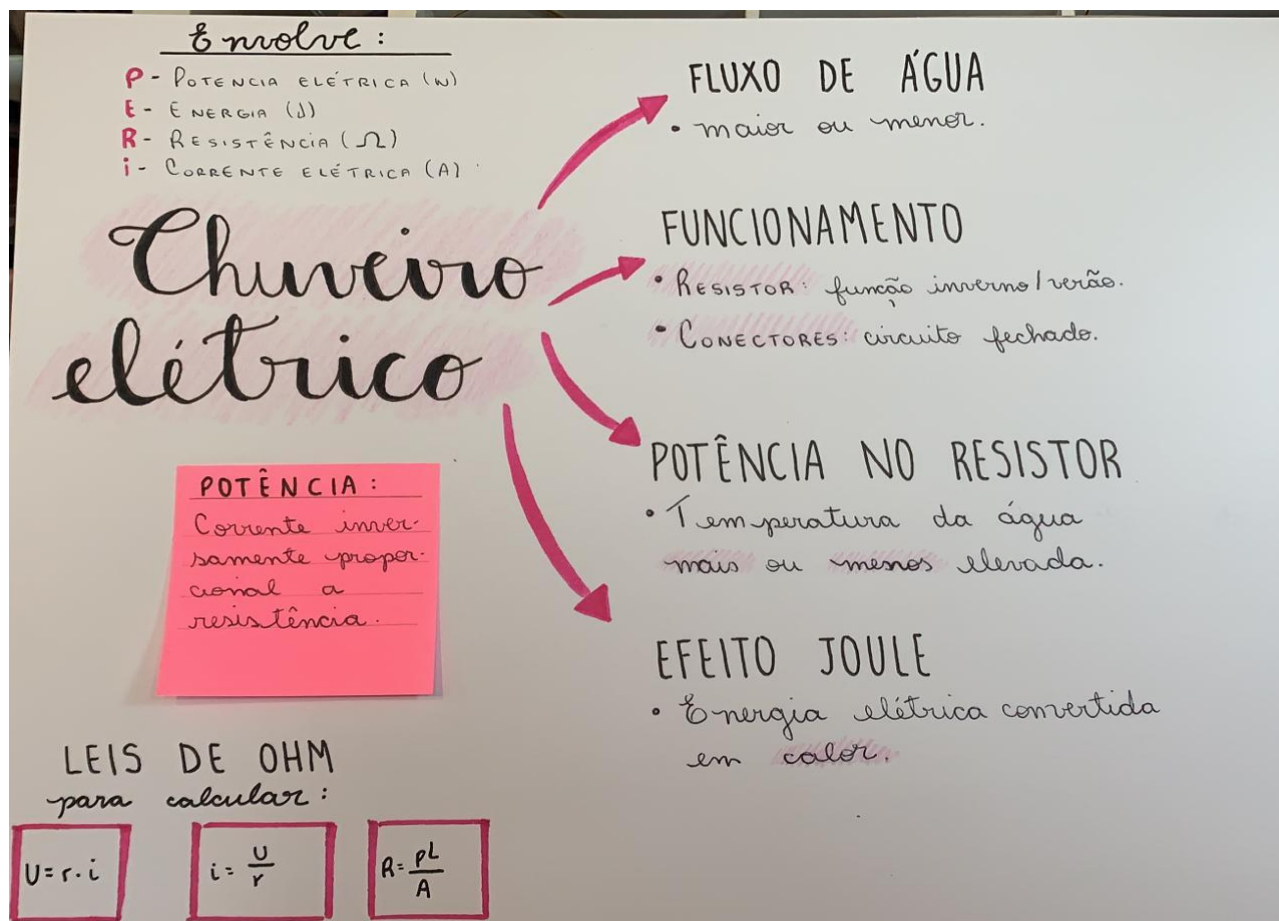 Envolve:
P - POTENCIA ELÉTRICA (W)
E - ENERGIA (J)
R - RESISTÊNCIA (Ω)
i - CORRENTE ELÉTRICA (A)
Chuveiro
elétrico
POTÊNCIA:
Corrente inver-
samente propor-
cional a
resistência.
LEIS DE OHM
para calcular:
U = r . i
i = U/r
R = ρL/A
FLUXO DE ÁGUA
• maior ou menor.
FUNCIONAMENTO
• RESISTOR: função inverno/verão.
• CONECTORES: circuito fechado.
POTÊNCIA NO RESISTOR
• Temperatura da água
mais ou menos elevada.
EFEITO JOULE
• Energia elétrica convertida
em calor.